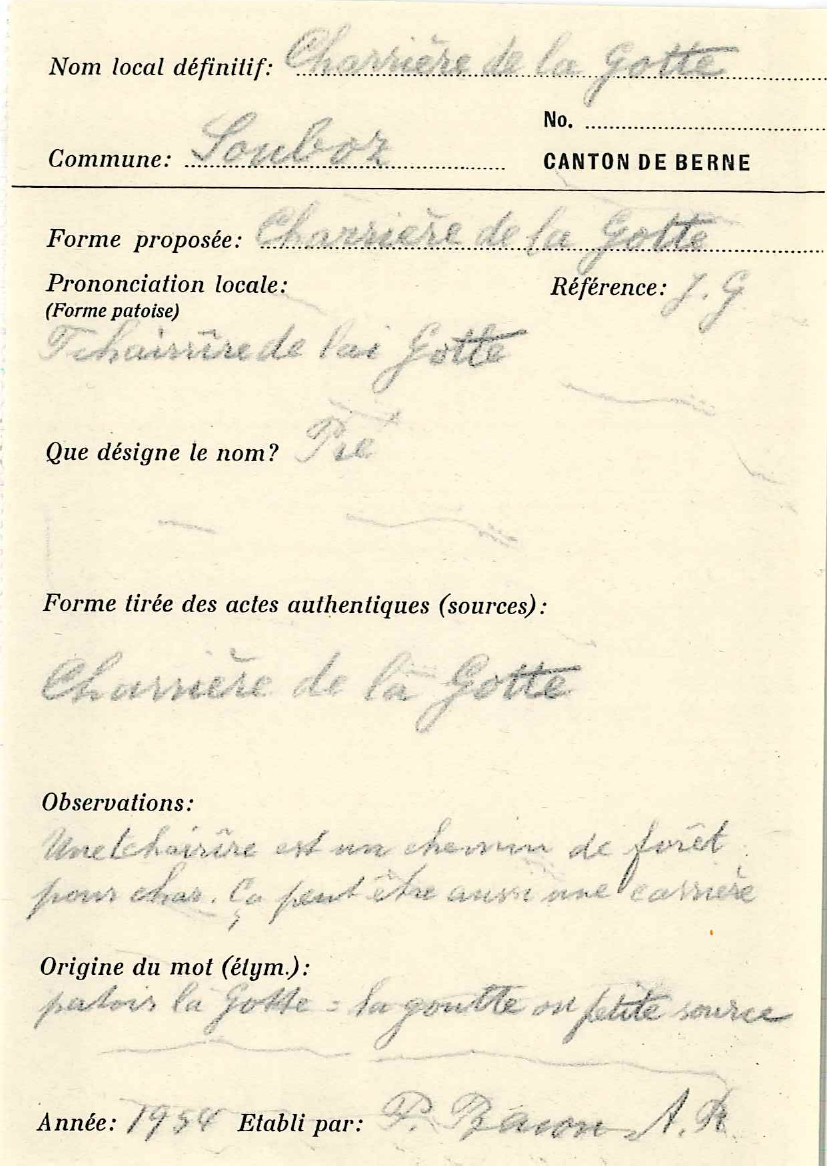 Nom local définitif: Charrière de la Gotte
No.
Commune: Souboz CANTON DE BERNE
Forme proposée: Charrière de la Gotte
Prononciation locale: Référence: J. G
(Forme patoise)
Tchairrîre de lai Gotte
Que désigne le nom? Pré
Forme tirée des actes authentiques (sources):
Charrière de la Gotte
Observations:
Une tchairrîre est un chemin de forêt
pour char. Ça peut être aussi une carrière
Origine du mot (étym.):
patois la Gotte = la goutte ou petite source
Année: 1954 Etabli par: P. A. R